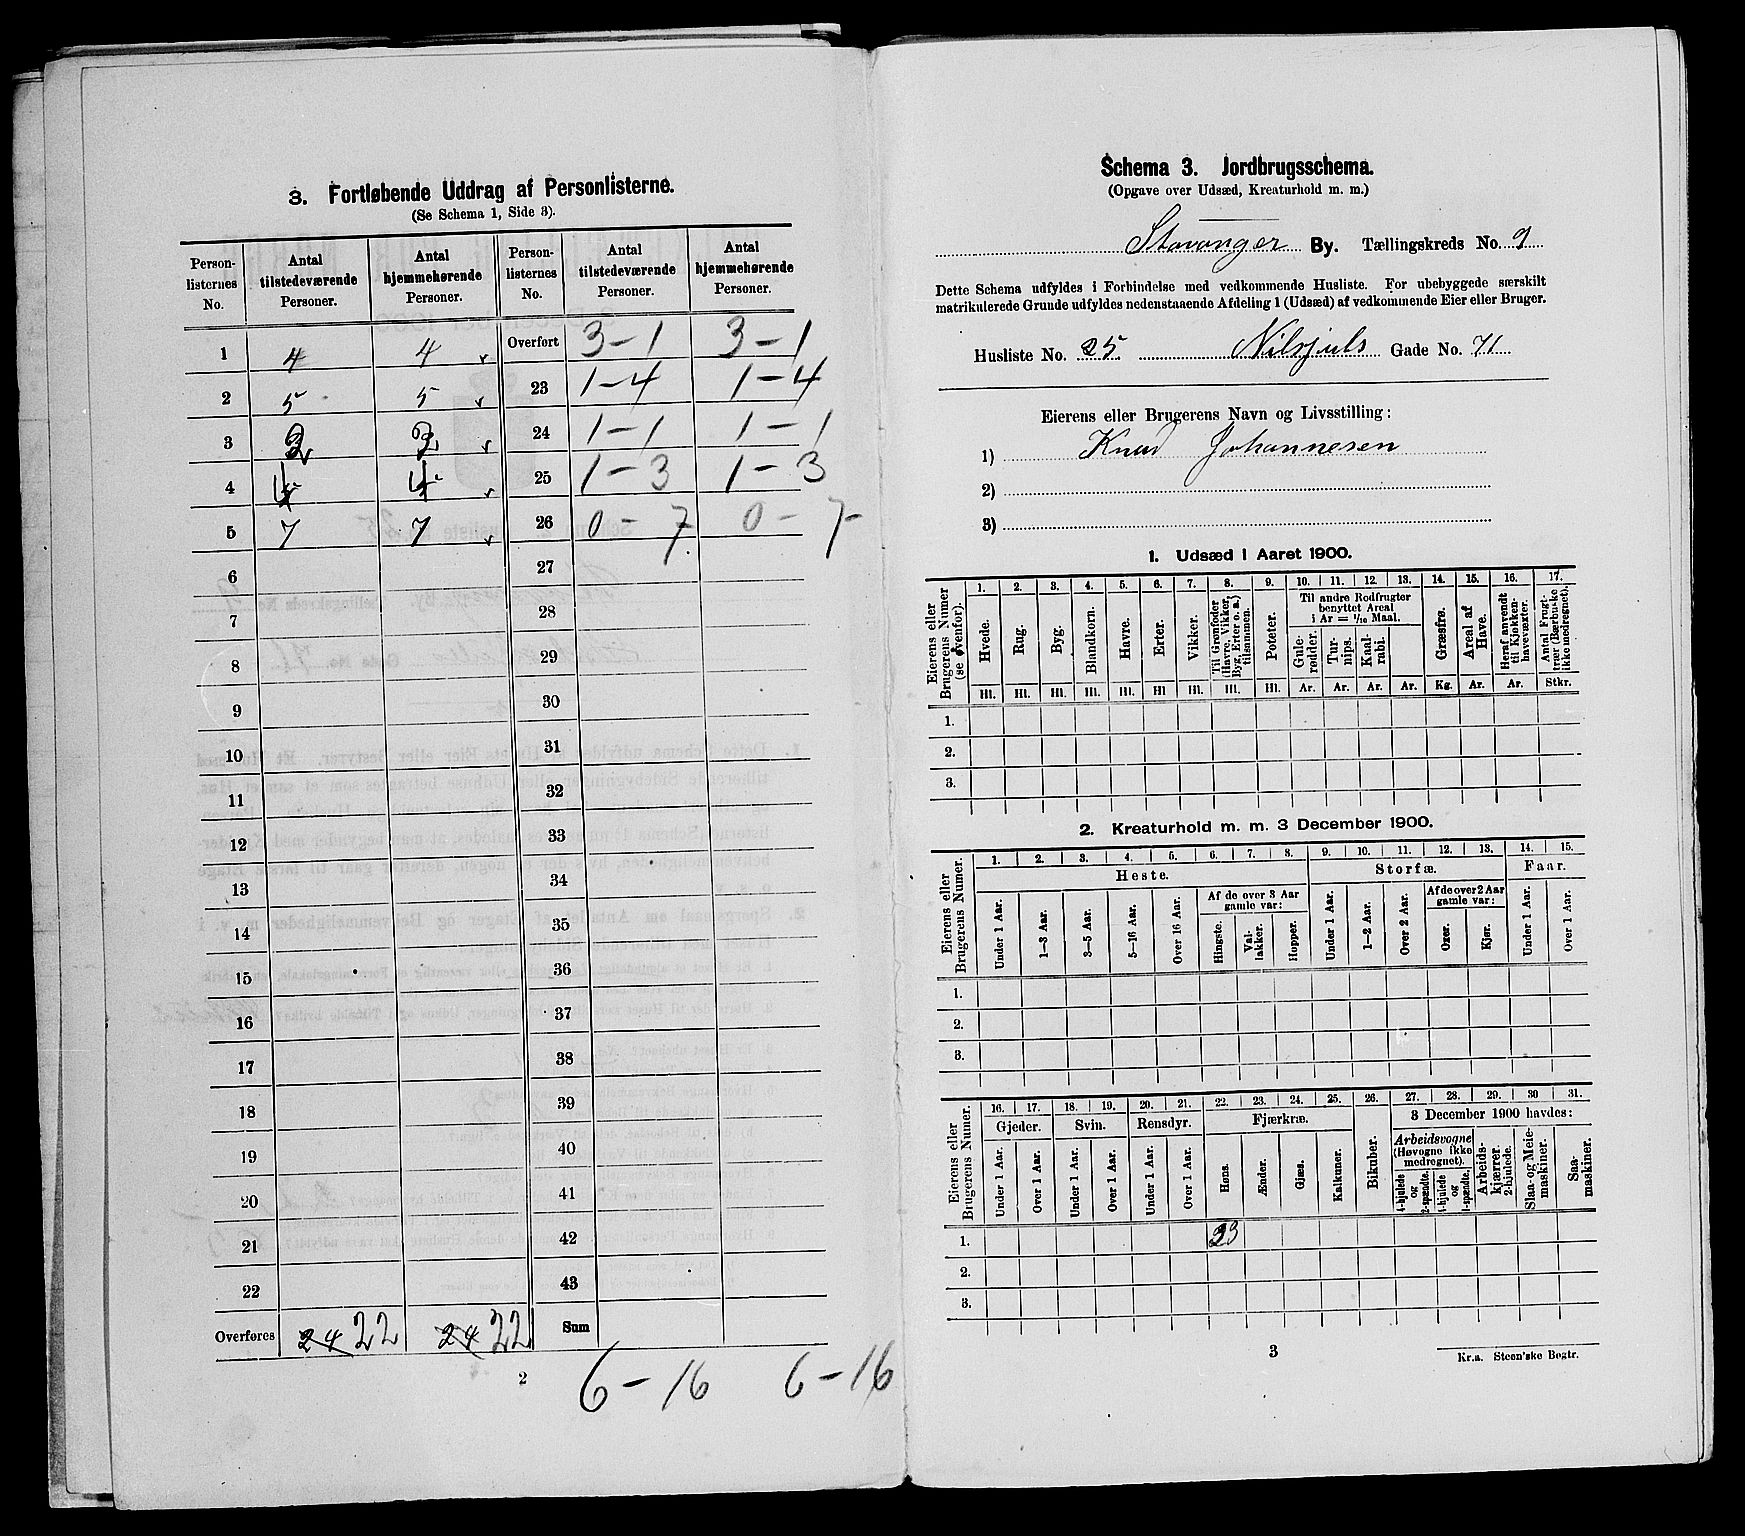 3. Fortløbende Uddrag af Personlisterne.
(Se Schema 1, Side 3).
Person-listernes No. | Antal tilstedeværende Personer. | Antal hjemmehørende Personer. | Person-listernes No. | Antal tilstedeværende Personer. | Antal hjemmehørende Personer.
1 | 4 | 4 v | Overført | 3-1 | 3-1
2 | 5 | 5 v | 23 | 1-4 | 1-4
3 | 2 | 2 v | 24 | 1-1 | 1-1
4 | 4 | 4 v | 25 | 1-3 | 1-3
5 | 7 | 7 v | 26 | 0-7 | 0-7
6 | 27
7 | 28
8 | 29
9 | 30
10 | 31
11 | 32
12 | 33
13 | 34
14 | 35
15 | 36
16 | 37
17 | 38
18 | 39
19 | 40
20 | 41
21 | 42
22 | 43
Overføres | 24 22 | 24 22 | Sum
2
6-16 6-16
Schema 3. Jordbrugsschema.
(Opgave over Udsæd, Kreaturhold m. m.)
Stavanger By. Tællingskreds No. 9
Dette Schema udfyldes i Forbindelse med vedkommende Husliste. For ubebyggede særskilt
matrikulerede Grunde udfyldes nedenstaaende Afdeling 1 (Udsæd) af vedkommende Eier eller Bruger.
Husliste No. 25. Nilsjuels Gade No. 71
Eierens eller Brugerens Navn og Livsstilling:
1) Knud Johannesen
2)
3)
1. Udsæd i Aaret 1900.
Eierens eller Brugerens Numer (se ovenfor).
1. 2. 3. 4. 5. 6. 7. 8. 9. 10. 11. 12. 13. 14. 15. 16. 17.
Hvede. Rug. Byg. Blandkorn. Havre. Erter. Vikker. Til Grønfoder (Havre, Vikker, Byg, Erter o. a.) tilsammen. Poteter. Til andre Rodfrugter benyttet Areal i Ar = 1/10 Maal. Gulerødder. Turnips. Kaalrabi. Græsfrø. Areal af Have. Heraf anvendt til Kjøkkenhavevæxter. Antal Frugttrær (Bærbuske ikke medregnet).
Hl. Hl. Hl. Hl. Hl. Hl Hl. Hl. Hl. Ar. Ar. Ar. Ar. Kg. Ar. Ar. Stkr.
1.
2.
3.
2. Kreaturhold m. m. 3 December 1900.
Eierens eller Brugerens Numer.
1. 2. 3. 4. 5. 6. 7. 8. 9. 10. 11. 12. 13. 14. 15.
Heste. Storfæ. Faar.
Under 1 Aar. 1-3 Aar. 3-5 Aar. 5-16 Aar. Over 16 Aar. Af de over 3 Aar gamle var: Hingste. Vallakker. Hopper. Under 1 Aar. 1-2 Aar. Over 2 Aar. Af de over 2 Aar gamle var: Oxer. Kjør. Under 1 Aar. Over 1 Aar.
1.
2.
3.
Eierens eller Brugerens Numer.
16. 17. 18. 19. 20. 21. 22. 23. 24. 25. 26. 27. 28. 29. 30 31.
Gjeder. Svin. Rensdyr. Fjærkræ. Bikuber. 3 December 1900 havdes:
Under 1 Aar. Over 1 Aar. Under 1 Aar. Over 1 Aar. Under 1 Aar. Over 1 Aar. Høns. Ænder. Gjæs. Kalkuner. Arbeidsvogne (Høvogne ikke medregnet). 4-hjulede og 2-spændte. 4-hjulede og 1-spændte. Arbeids-kjærrer. 2-hjulede. Slaa- og Meiemaskiner. Saamaskiner.
1. 23
2.
3.
3
Kr.a. Steen'ske Bogtr.